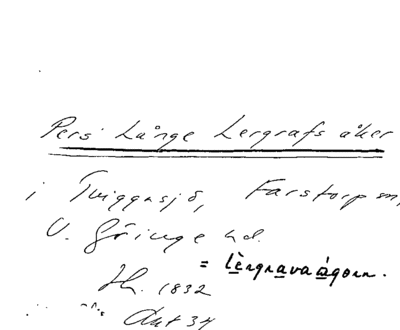 Pers Långe Lergrafs åker
i Tviggasjö, Farstorp sn,
V. Göinge hd.
= lèrgravaågorn.
Sk. 1832
Akt 34